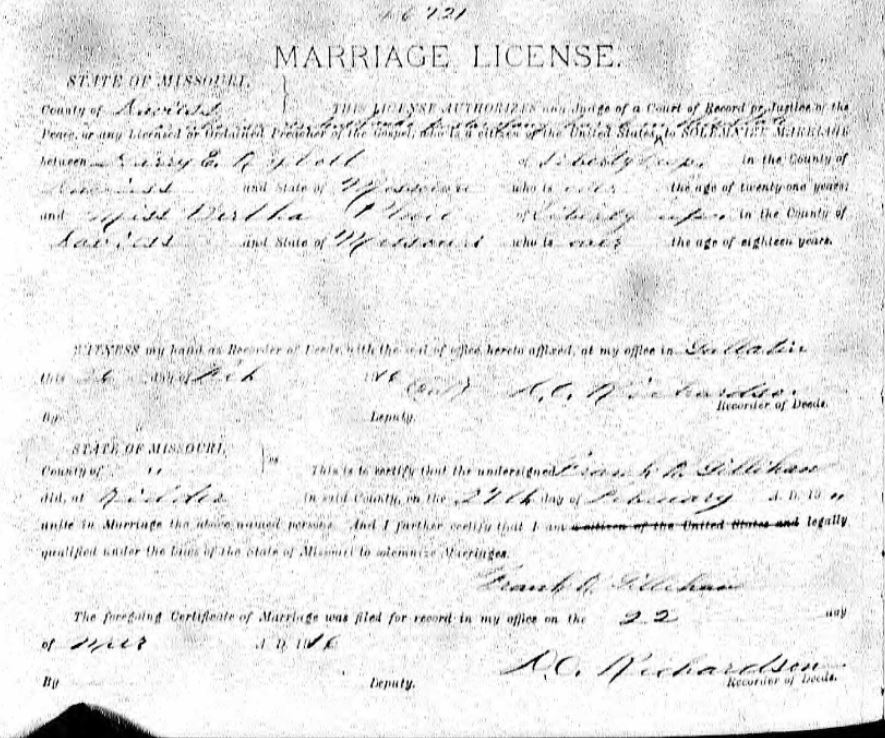 MARRIAGE LICENSE.
STATE OF MISSOURI,
County of Daviess THIS LICENSE AUTHORIZES any Judge of a Court of Record or Justice of the
Peace, or any Licensed or Ordained Preacher of the Gospel, who is a citizen of the United States, to SOLEMNIZE MARRIAGE
between Harry E. of Liberty twp. in the County of
Daviess and State of Missouri who is over the age of twenty-one years;
and Miss Bertha of Liberty twp. in the County of
Daviess and State of Missouri who is over the age of eighteen years.
WITNESS my hand as Recorder of Deeds, with the seal of office hereto affixed, at my office in Gallatin
this 26 day of Feb 1916
(Seal) D.C. Richardson
Recorder of Deeds.
By Deputy.
STATE OF MISSOURI,
County of " ss This is to certify that the undersigned Frank N. Gillihan
did, at Kidder in said County, on the 27th day of February A. D. 19 "
unite in Marriage the above named persons. And I further certify that I am a citizen of the United States and legally
qualified under the laws of the State of Missouri to solemnize Marriages.
Frank N. Gillihan
The foregoing Certificate of Marriage was filed for record in my office on the 22 day
of Mar A. D. 1916
D.C. Richardson
Recorder of Deeds.
By Deputy.